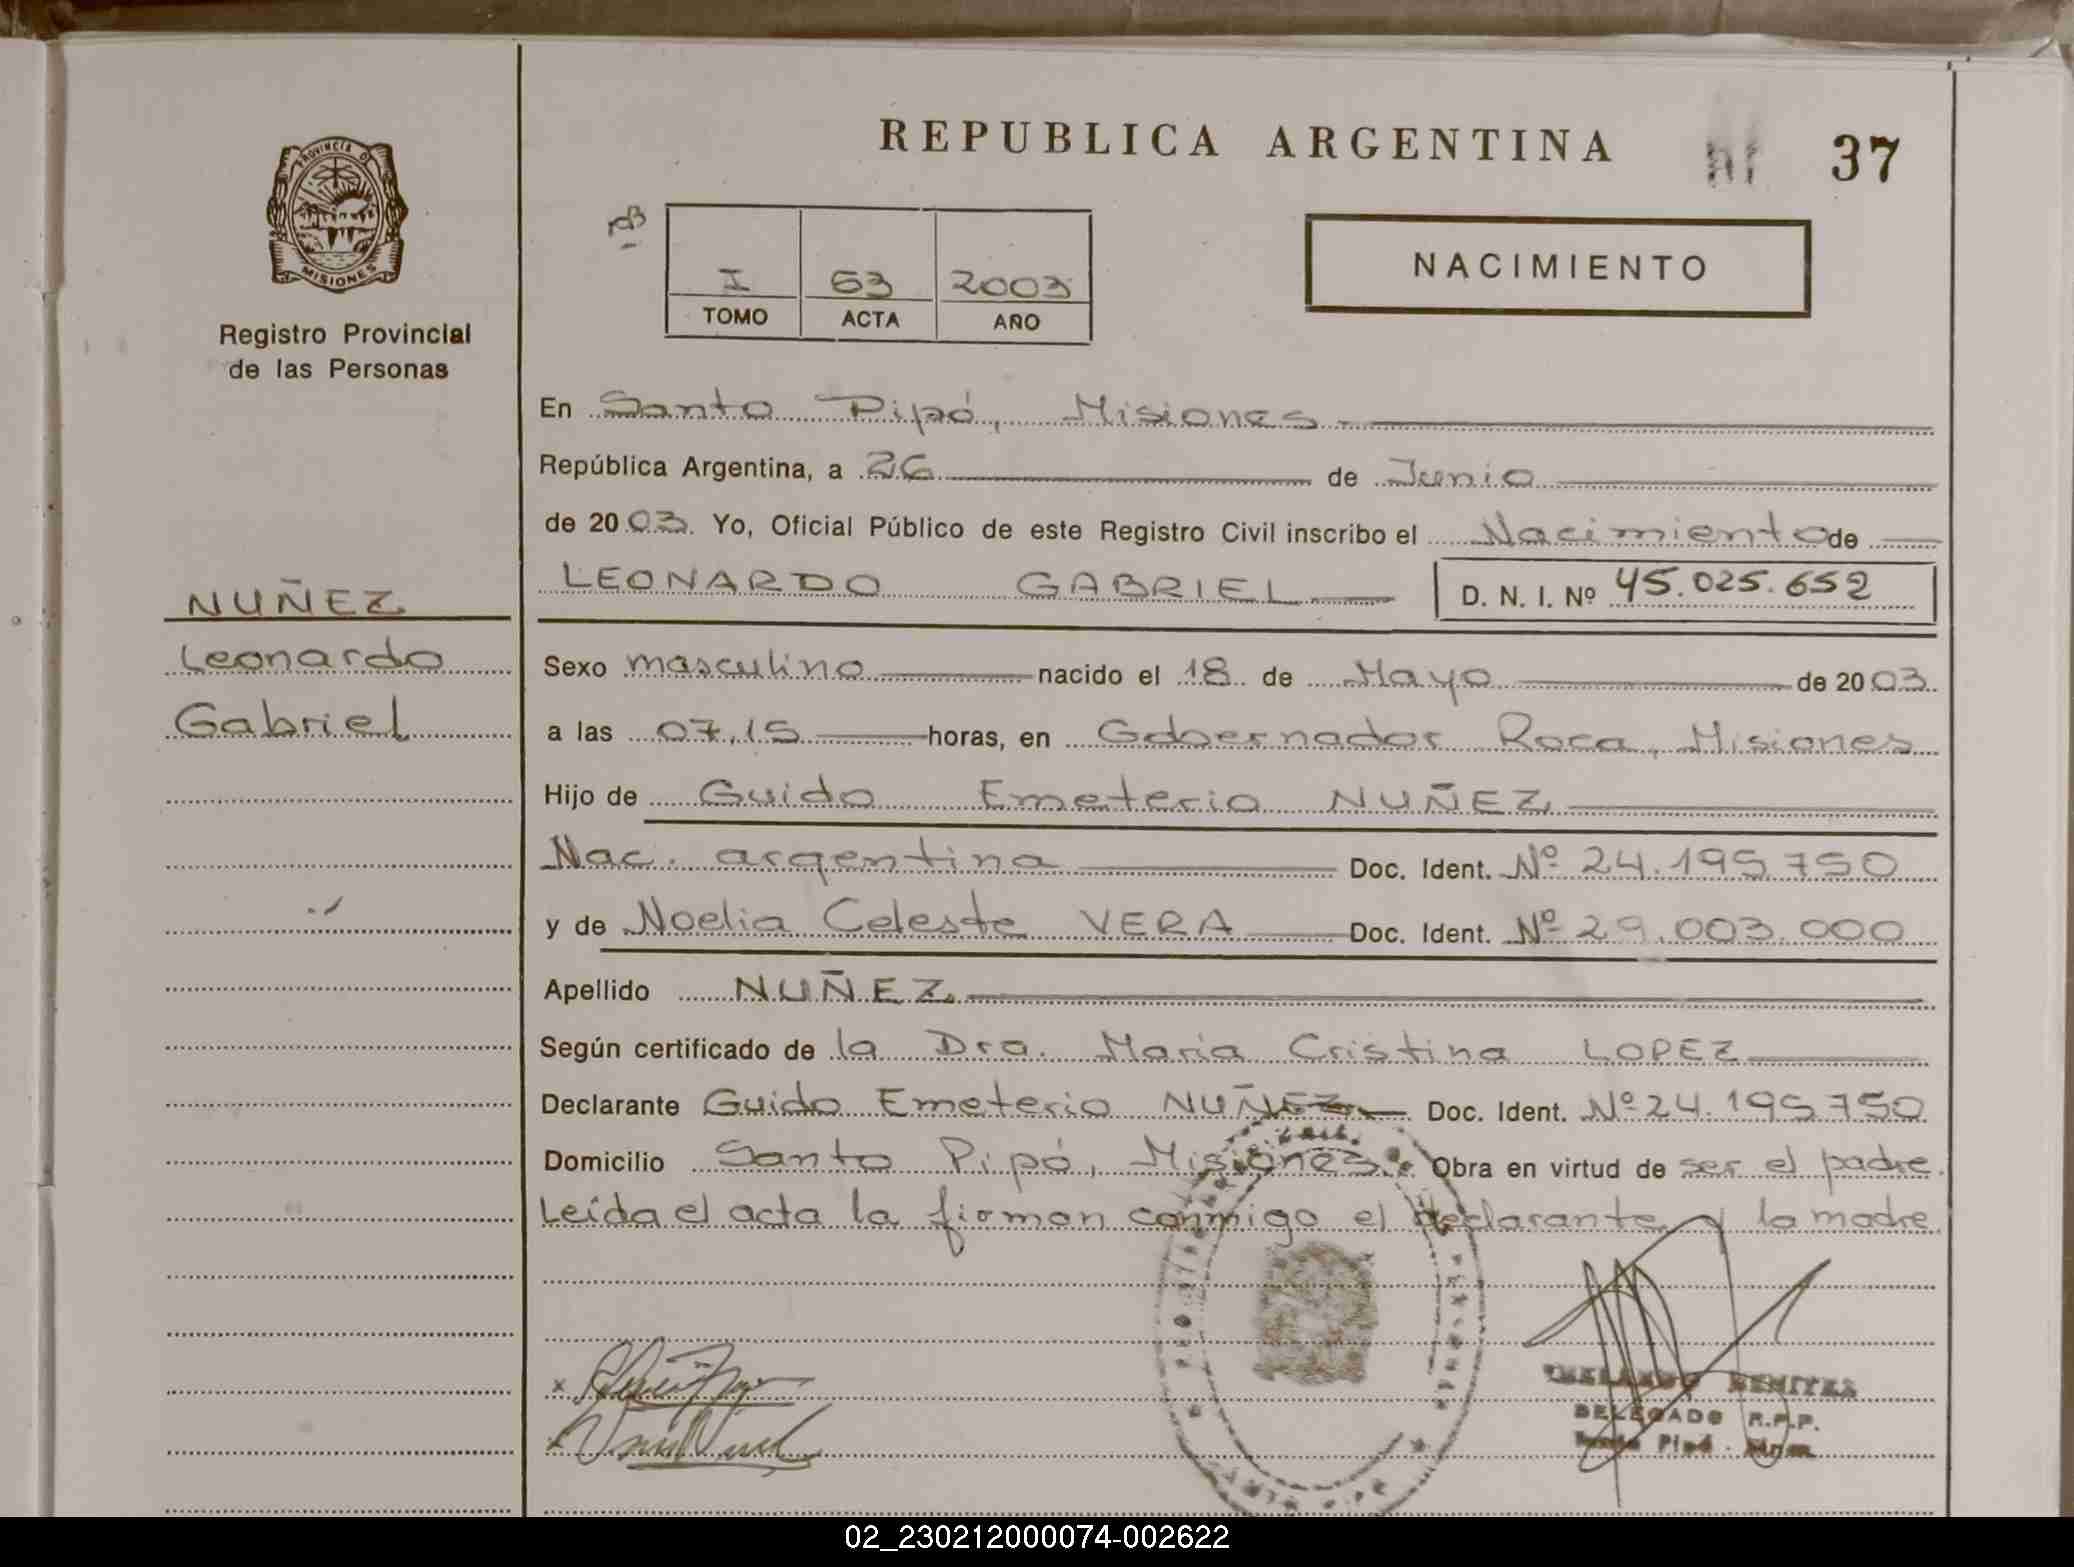 REPUBLICA ARGENTINA
37
PROVINCIA DE
MISIONES
Registro Provincial
de las Personas
I 63 2003
TOMO ACTA AÑO
NACIMIENTO
En Santo Pipó, Misiones
República Argentina, a 26 de Junio
de 2003. Yo, Oficial Público de este Registro Civil inscribo el Nacimiento de
LEONARDO GABRIEL D. N. I. Nº 45.025.652
NUÑEZ
Leonardo
Gabriel
Sexo masculino nacido el 18 de Mayo de 2003
a las 07,15 horas, en Gobernador Roca, Misiones
Hijo de Guido Emeterio NUÑEZ
Nac. argentina Doc. Ident. Nº 24.195.750
y de Noelia Celeste VERA Doc. Ident. Nº 29.003.000
Apellido NUÑEZ
Según certificado de la Dra. María Cristina LOPEZ
Declarante Guido Emeterio NUÑEZ Doc. Ident. Nº 24.195750
Domicilio Santo Pipó, Misiones. Obra en virtud de ser el padre.
Leída el acta la firman conmigo el declarante y la madre.
BENITEZ
DELEGADO R.P.P.
Santo Pipó - Mnes.
02_230212000074-002622